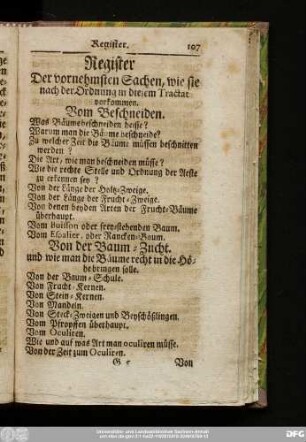 Register. 107
Register
Der vornehmsten Sachen, wie sie
nach der Ordnung in diesem Tractat
vorkommen.
Vom Beschneiden.
Was Bäume beschneiden heisse?
Warum man die Bäume beschneide?
Zu welcher Zeit die Bäume müssen beschnitten
werden?
Die Art, wie man beschneiden müsse?
Wie die rechte Stelle und Ordnung der Aeste
zu erkennen sey?
Von der Länge der Holtz-Zweige.
Von der Länge der Frucht-Zweige.
Von denen beyden Arten der Frucht-Bäume
überhaupt.
Vom Buisson oder freystehenden Baum.
Vom Espalier, oder Rancken-Baum.
Von der Baum-Zucht.
und wie man die Bäume recht in die Hö-
he bringen solle.
Von der Baum-Schule.
Von Frucht-Kernen.
Von Stein-Kernen.
Von Mandeln.
Von Steck-Zweigen und Beyschößlingen.
Vom Pfropffen überhaupt.
Vom Oculiren.
Wie und auf was Art man oculiren müsse.
Von der Zeit zum Oculiren.
Von